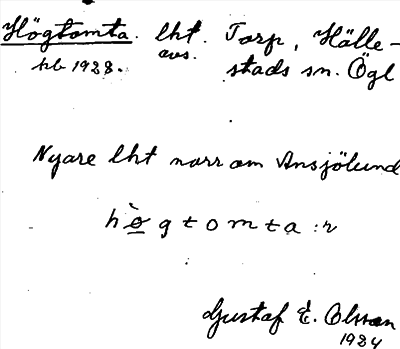 Högtomta. lht. Torp, Hälle-
hb 1928. avs. stads sn. Ögl
Nyare lht norr om Ansjölund
hø̀gtomta:r
Gustaf E. Olsson
1924